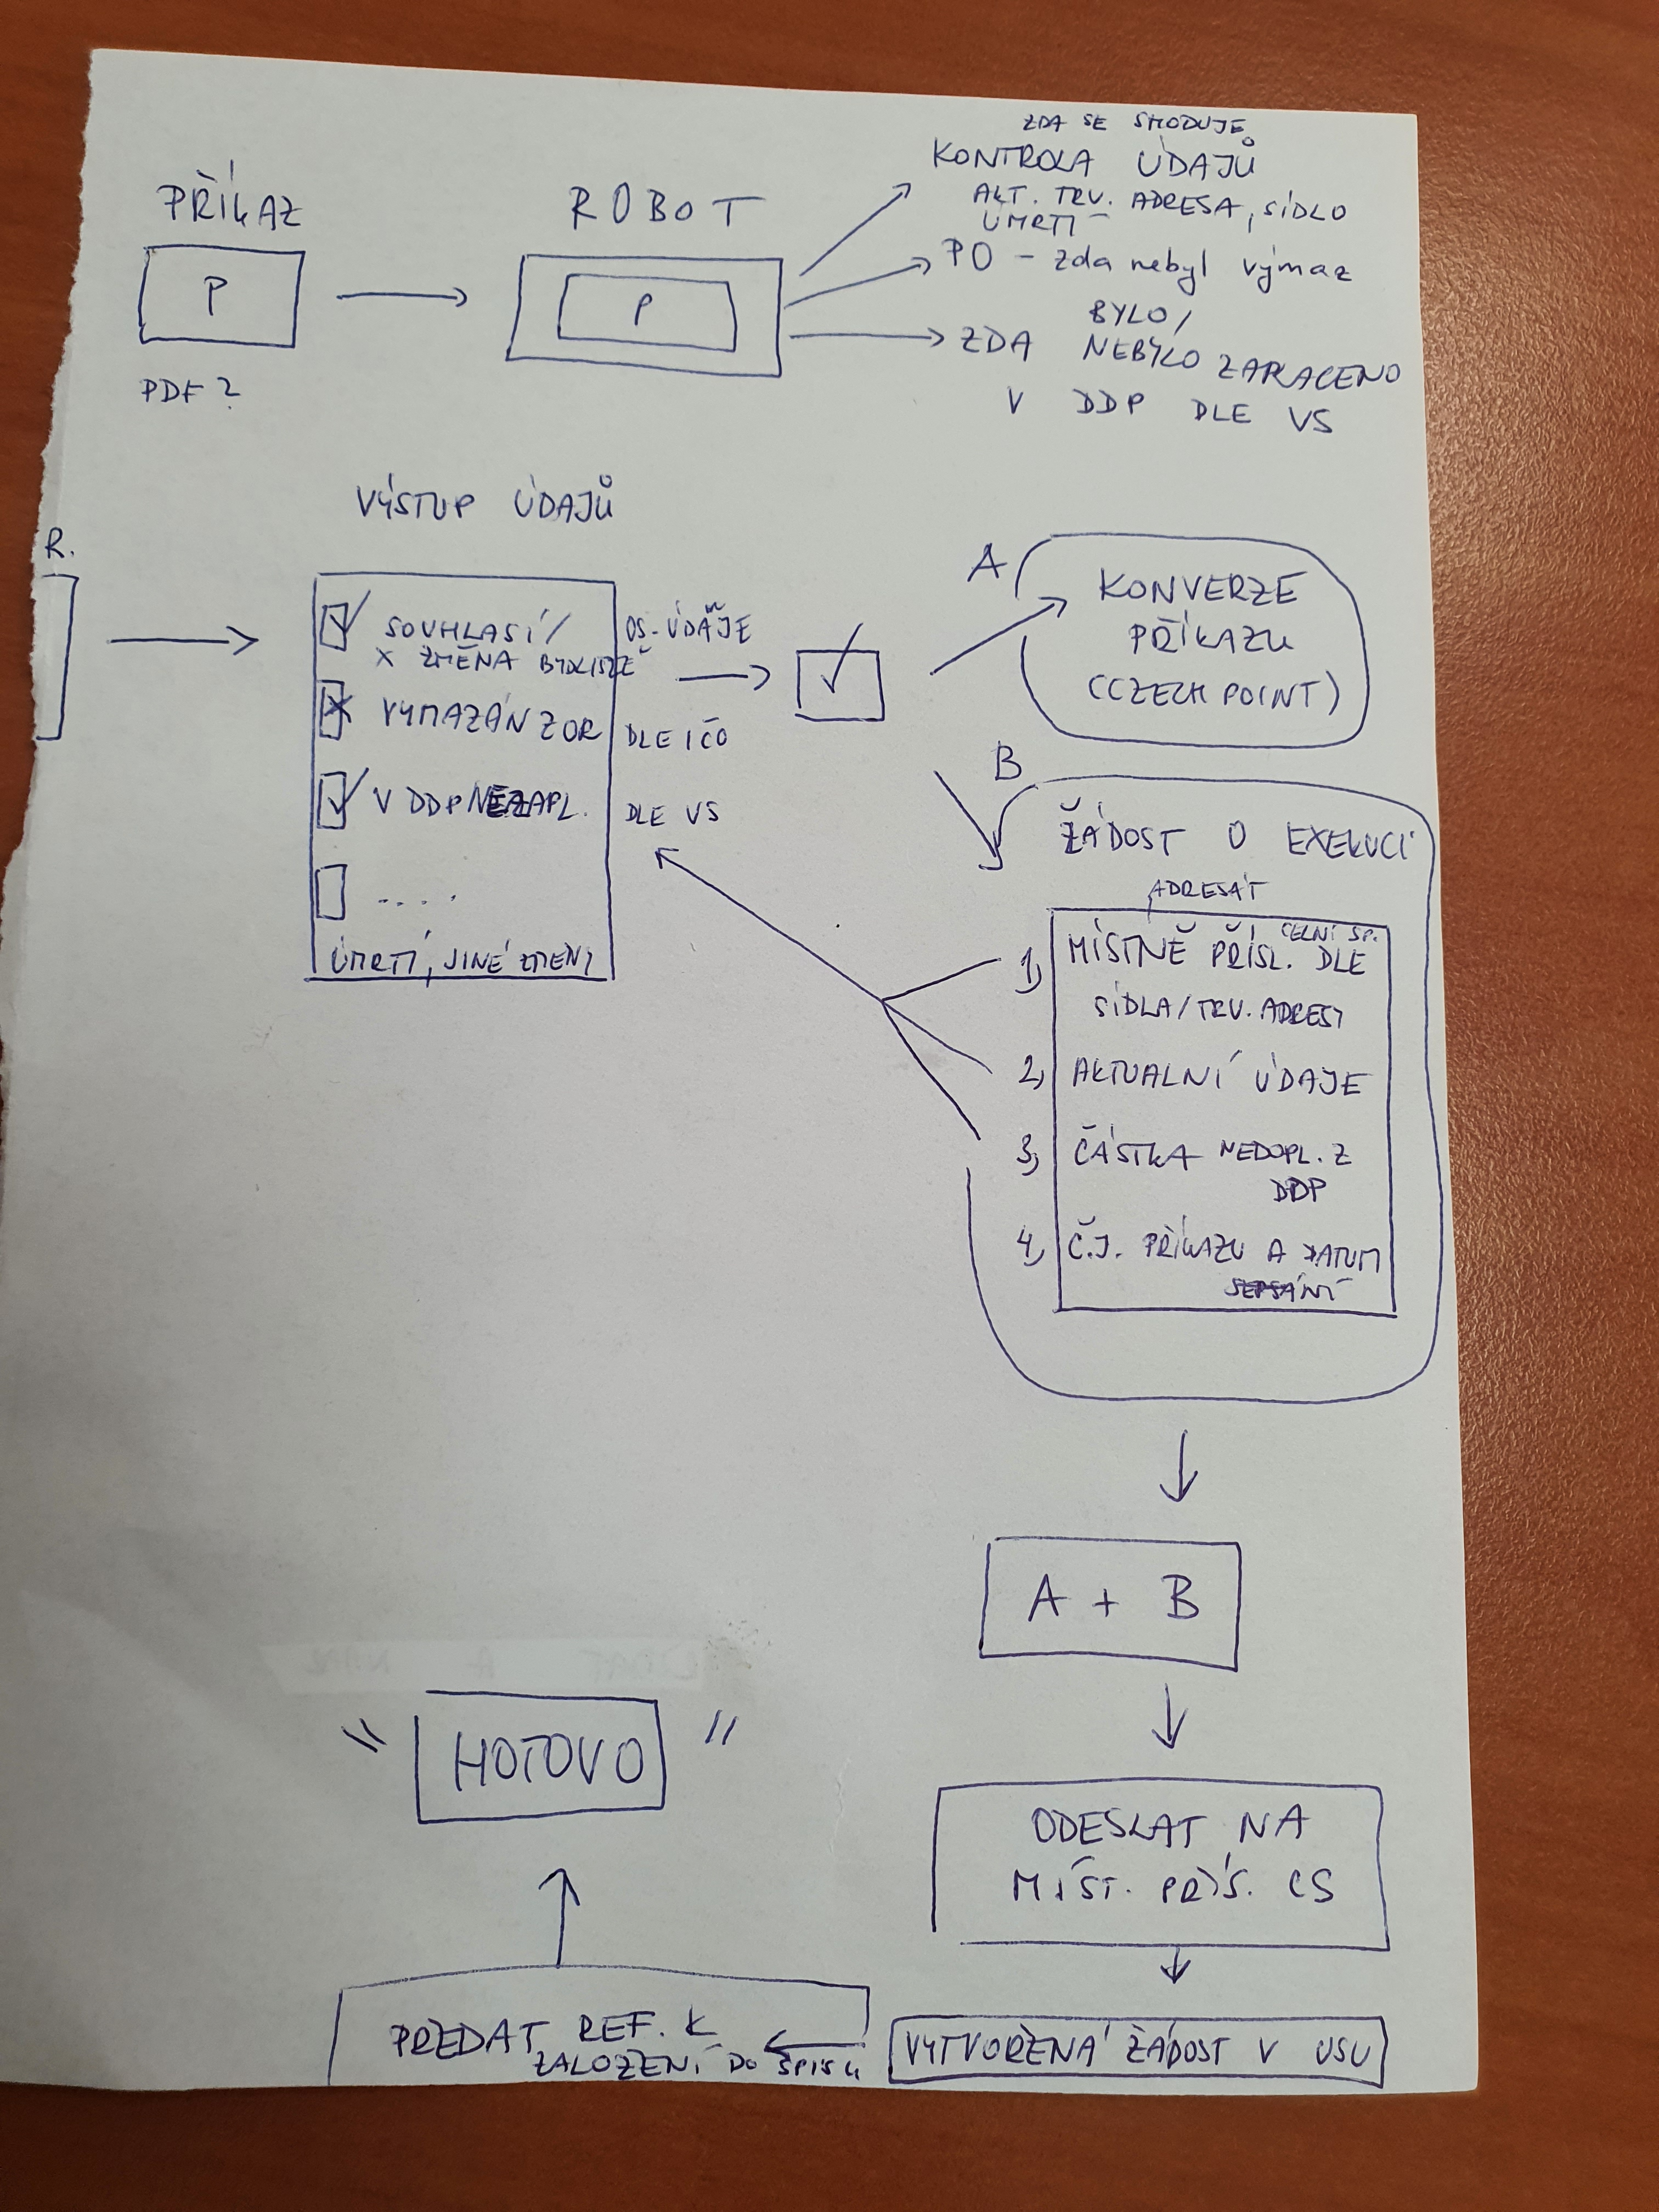 PŘÍKAZ
P
PDF?
ROBOT
P
ZDA SE SHODUJE
KONTROLA ÚDAJŮ
AKT. TRV. ADRESA, SÍDLO
ÚMRTÍ
PO - zda nebyl výmaz
BYLO/
ZDA NEBYLO ZAPLACENO
V DDP DLE VS
R.
VÝSTUP ÚDAJŮ
SOUHLASÍ/ OS. ÚDAJE
X ZMĚNA BYDLIŠTĚ
VYMAZÁN Z OR DLE IČO
V DDP NEZAPL. DLE VS
....
ÚMRTÍ, JINÉ ZMĚNY
A
KONVERZE
PŘÍKAZU
(CZECH POINT)
B
ŽÁDOST O EXEKUCI
ADRESÁT
CELNÍ SP.
1, MÍSTNĚ PŘÍSL. DLE
SÍDLA/TRV. ADRESY
2, AKTUALNÍ ÚDAJE
3, ČÁSTKA NEDOPL. Z
DDP
4, Č.J. PŘÍKAZU A DATUM
SEPSÁNÍ
A + B
ODESLAT NA
MÍST. PŘÍS. CS
VYTVOŘENÁ ŽÁDOST V USU
PŘEDAT REF. K
ZALOŽENÍ DO SPISU
"HOTOVO"